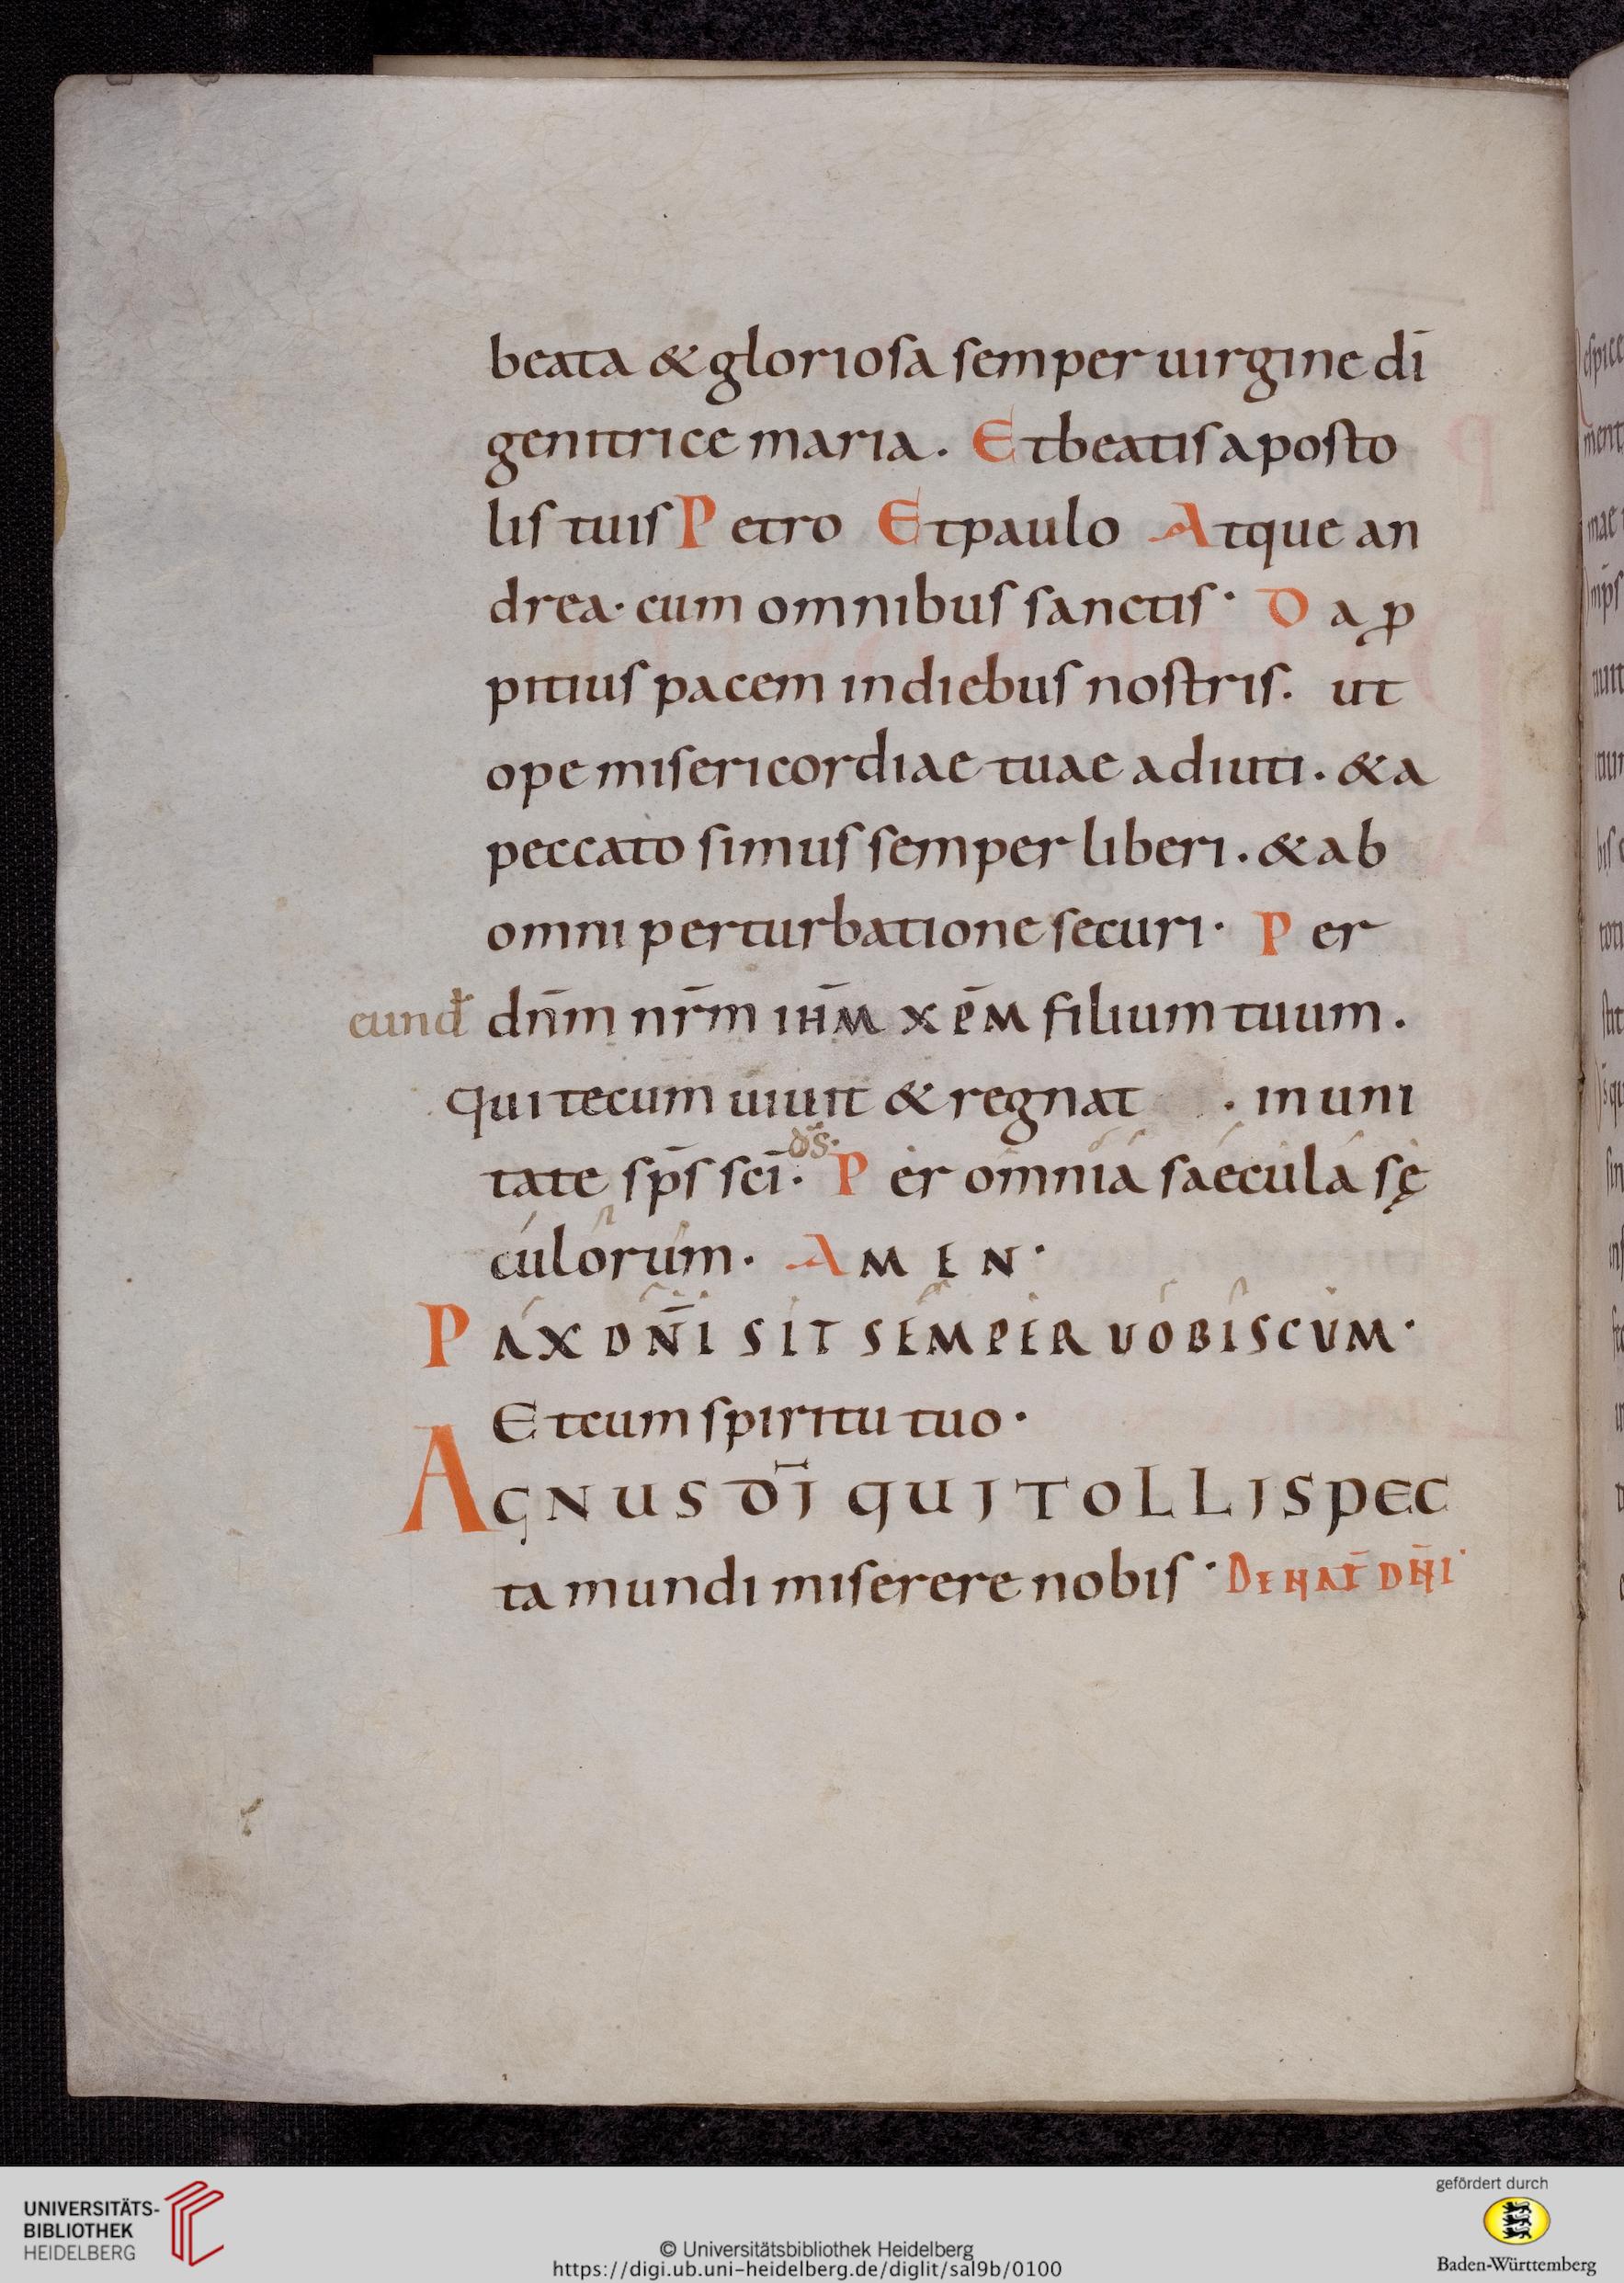 beata & gloriosa semper uirgine dī
genitrice maria. Et beatis aposto
lis tuis Petro Et paulo Atque an
drea· cum omnibus sanctis· Da ꝓ
pitius pacem in diebus nostris. ut
ope misericordiae tuae adiuti. & a
peccato simus semper liberi. & ab
omni perturbatione securi· Per
eund̄ dn̄m nr̄m ıħm xp̄m filium tuum.
qui tecum uiuit & regnat . in uni
tate sp̄s sc̄i. d̄s· Per omnia saecula sę
culorum. AMEN·
PAX DN̄I SIT SEMPER UOBISCUM·
Et cum spiritu tuo·
AGNUS DĪ QUI TOLLIS PEC
ta mundi miserere nobis· DE NAT̄ DN̄I·
UNIVERSITÄTS-
BIBLIOTHEK
HEIDELBERG
© Universitätsbibliothek Heidelberg
https://digi.ub.uni-heidelberg.de/diglit/sal9b/0100
gefördert durch
Baden-Württemberg